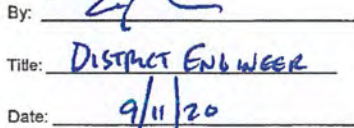 By:
Title: DISTRICT ENGINEER
Date: 9/11/20